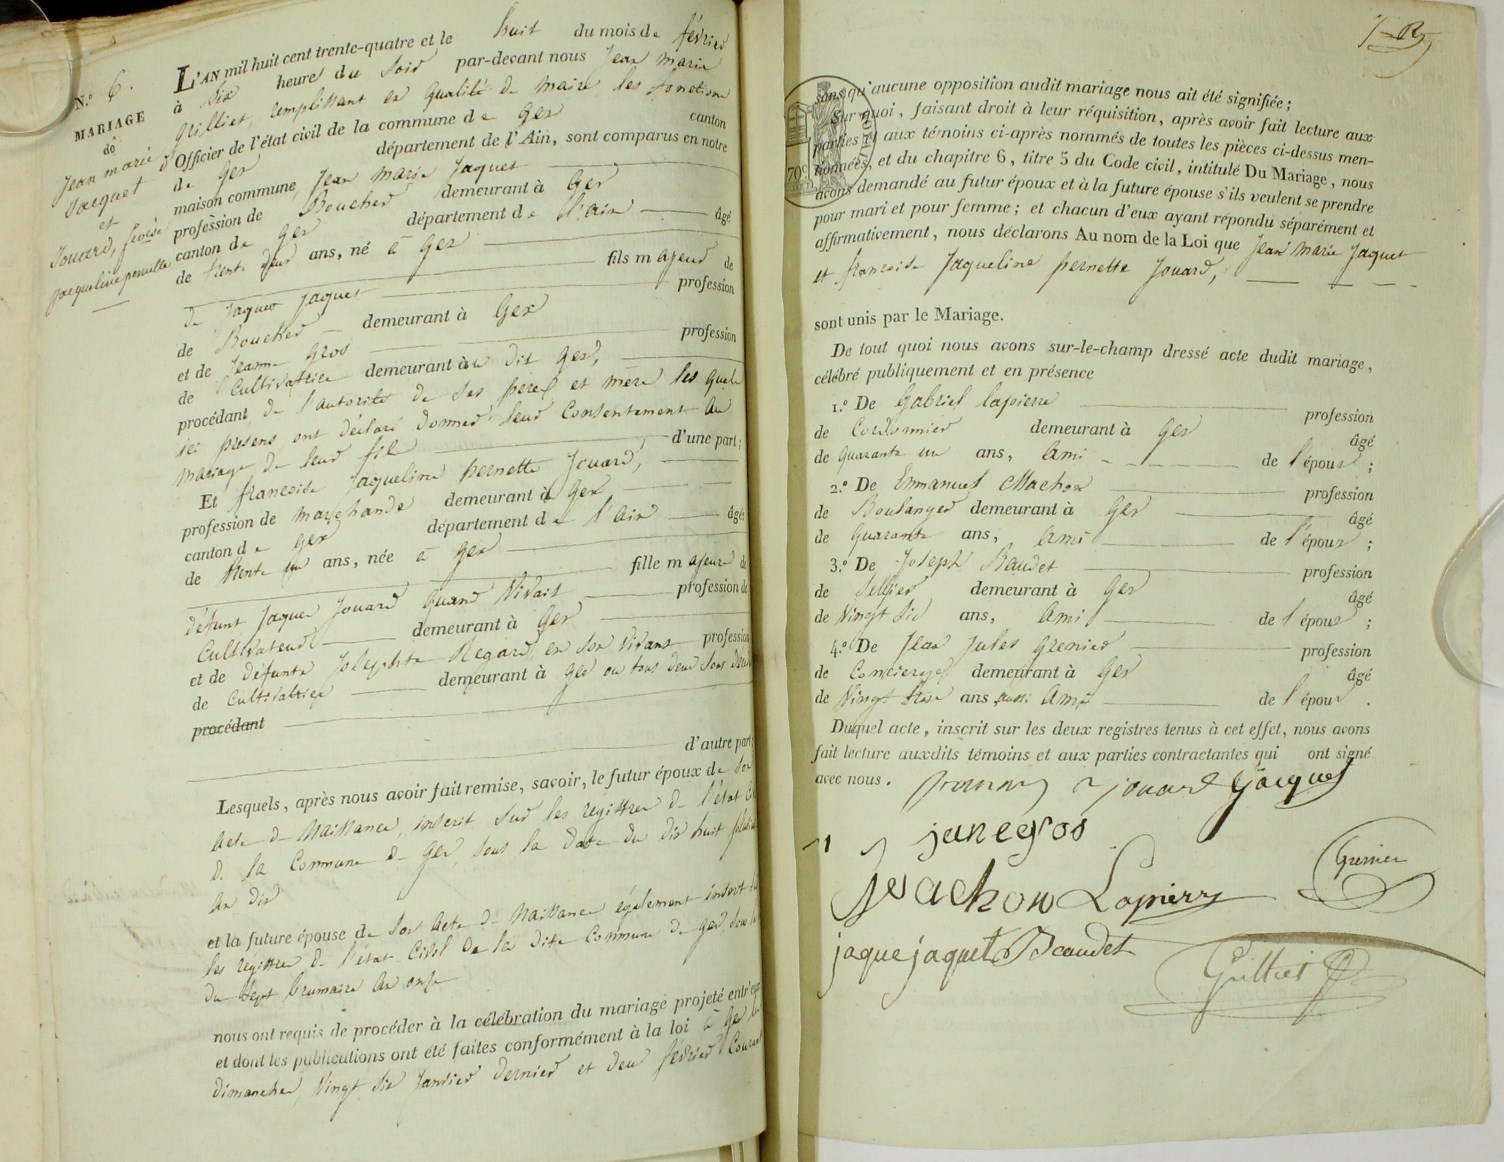 N.º 6.
MARIAGE
de
Jean marie
Jacquet
et
Jouard, fcoise
Jacqueline pernette
L'AN mil huit cent trente-quatre et le huit du mois de février
à Six heures du Soir par-devant nous Jean Marie
Grilliet, remplissant en qualité de maire les fonctions
d'Officier de l'état civil de la commune de Gex canton
de Gex département de l'Ain, sont comparus en notre
maison commune, Jean Marie Jaquet
profession de Boucher demeurant à Gex
canton de Gex département de l'ain âgé
de trente deux ans, né à Gex
fils majeur de
de Jaques Jaquet profession
de Boucher demeurant à Gex
et de Jeanne Gros profession
de Cultivatrice demeurant au dit Gex,
procédant de l'autorité de ses pere et mère les quels
ici presens ont déclaré donner leur Consentement au
mariage de leur fils d'une part;
Et françoise Jaqueline pernette Jouard,
profession de marchande demeurant à Gex
canton de Gex département de l'Ain âgée
de trente un ans, née à Gex
fille majeure de
défunt Jaques Jouard quand Vivait profession de
Cultivateur demeurant à Gex
et de défunte Josephte Regard, en son Vivant profession
de Cultivatrice demeurant à Gex ou tous deux sont
procédant
d'autre part;
Lesquels, après nous avoir fait remise, savoir, le futur époux de son
acte de Naissance, inscrit sur les registres de l'état
de la Commune de Gex, sous la date du dix huit
an dix
et la future épouse de son acte de Naissance également inscrit
les registres de l'état-Civil de la dite Commune de Gex, sous
du sept brumaire an onze
nous ont requis de procéder à la célébration du mariage projeté entr'eux
et dont les publications ont été faites conformément à la loi à Gex, les
dimanches, Vingt six Janvier dernier et deux février Courant
sans qu'aucune opposition audit mariage nous ait été signifiée;
Sur quoi, faisant droit à leur réquisition, après avoir fait lecture aux
parties et aux témoins ci-après nommés de toutes les pièces ci-dessus men-
tionnées, et du chapitre 6, titre 5 du Code civil, intitulé Du Mariage, nous
avons demandé au futur époux et à la future épouse s'ils veulent se prendre
pour mari et pour femme; et chacun d'eux ayant répondu séparément et
affirmativement, nous déclarons Au nom de la Loi que Jean Marie Jaquet
et françoise Jaqueline pernette Jouard,
sont unis par le Mariage.
De tout quoi nous avons sur-le-champ dressé acte dudit mariage,
célébré publiquement et en présence
1.º De Gabriel Lapierre profession
de Cordonnier demeurant à Gex âgé
de quarante un ans, ami de l'époux;
2.º De Emmanuel Machon profession
de Boulanger demeurant à Gex âgé
de quarante ans, ami de l'époux;
3.º De Joseph Baudet profession
de Sellier demeurant à Gex âgé
de Vingt six ans, ami de l'époux;
4.º De Jean Jules Grenier profession
de Concierge demeurant à Gex âgé
de Vingt ans aussi ami de l'époux.
Duquel acte, inscrit sur les deux registres tenus à cet effet, nous avons
fait lecture auxdits témoins et aux parties contractantes qui ont signé
avec nous.
jouard Jacquet
jane gros
Grenier
Machon Lapierre
jaque jaquet Beaudet
Grilliet
70c